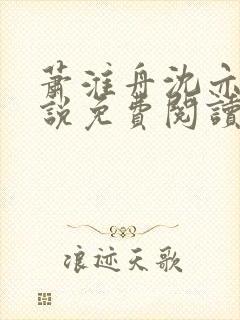 萧淮舟沈亦
說免費閱讀
浪迹天歌